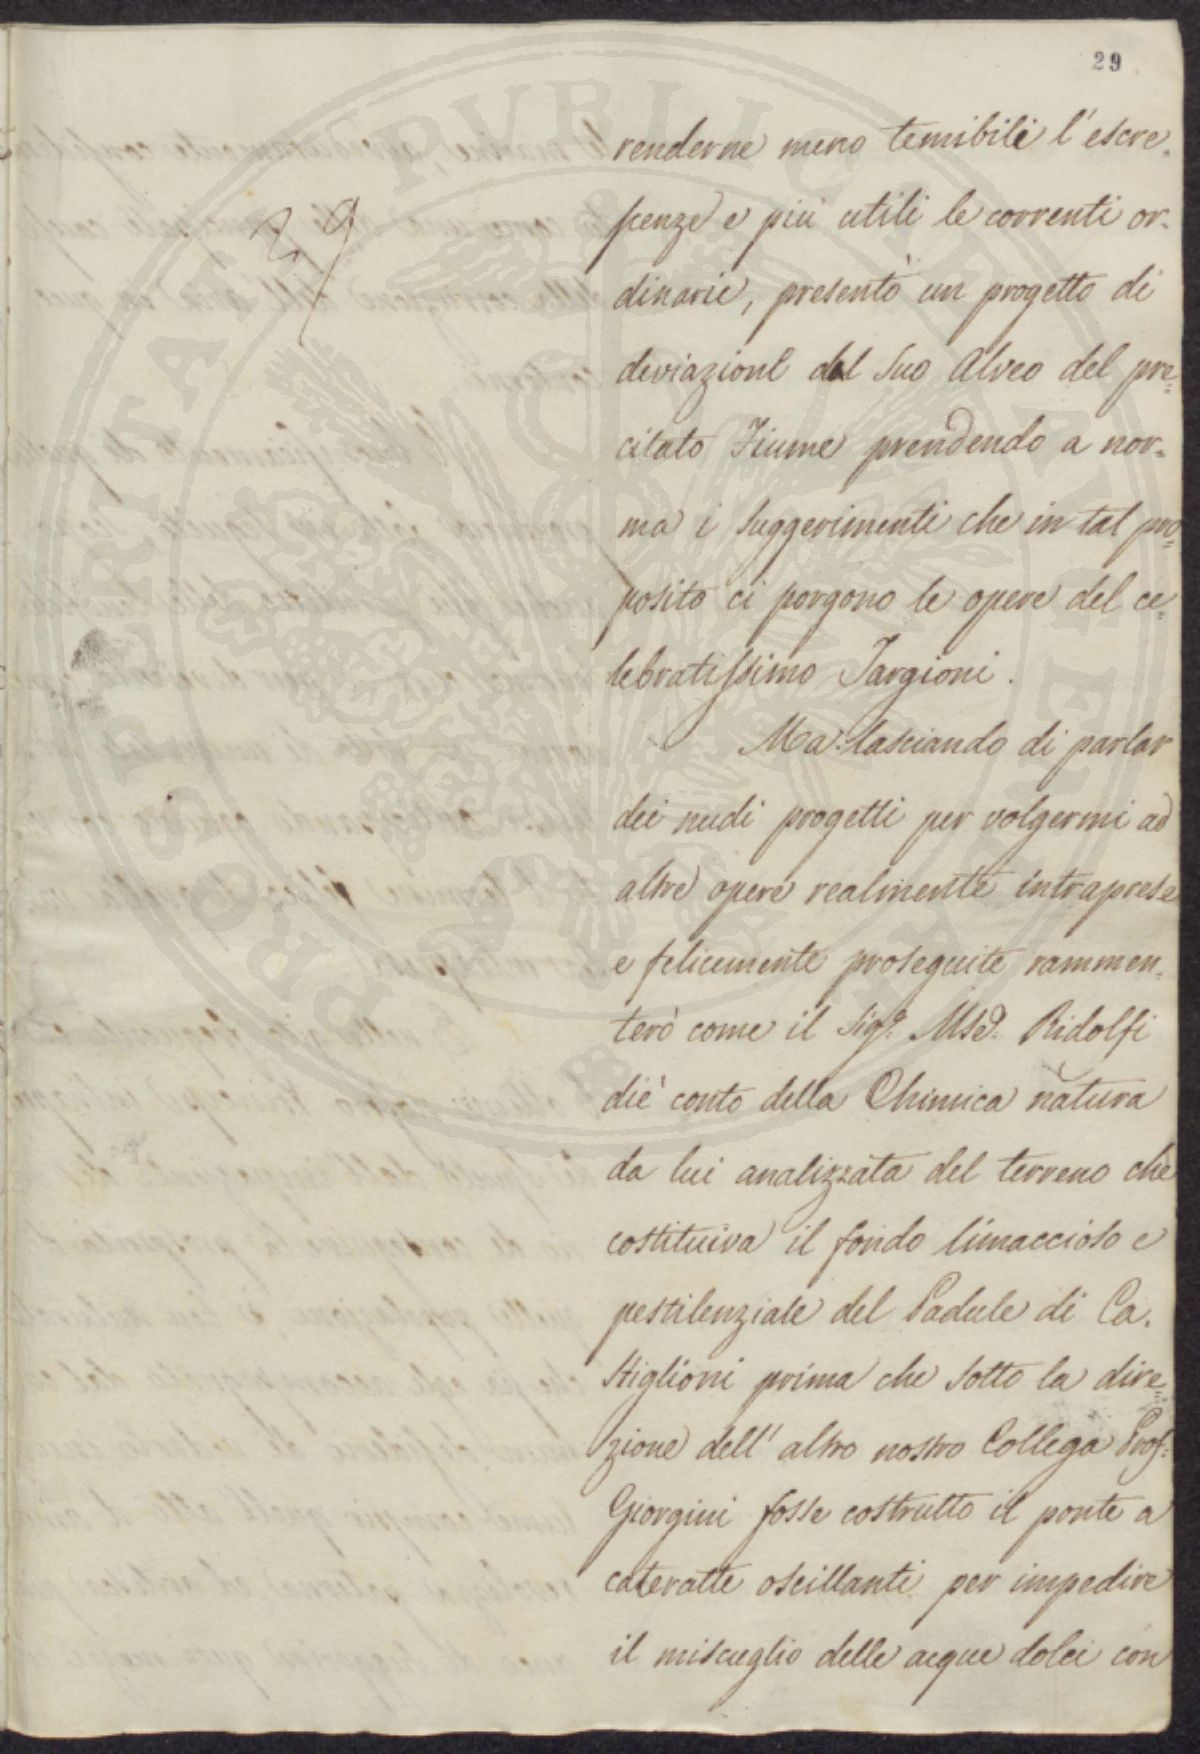 29
29
renderne meno temibili l'escre-
scenze e più utili le correnti or-
dinarie, presentò un progetto di
deviazione dal suo Alveo del pre=
citato Fiume prendendo a nor-
ma i suggerimenti che in tal pro=
posito ci porgono le opere del ce=
lebratissimo Targioni.
Ma lasciando di parlar
dei nudi progetti per volgermi ad
altre opere realmente intraprese
e felicemente proseguite rammen-
terò come il Sigr. Mse. Ridolfi
diè conto della Chimica natura
da lui analizzata del terreno che
costituiva il fondo limaccioso e
pestilenziale del Padule di Ca-
stiglioni prima che sotto la dire=
zione dell'altro nostro Collega Prof:
Giorgini fosse costrutto il ponte a
cateratte oscillanti per impedire
il miscuglio delle acque dolci con